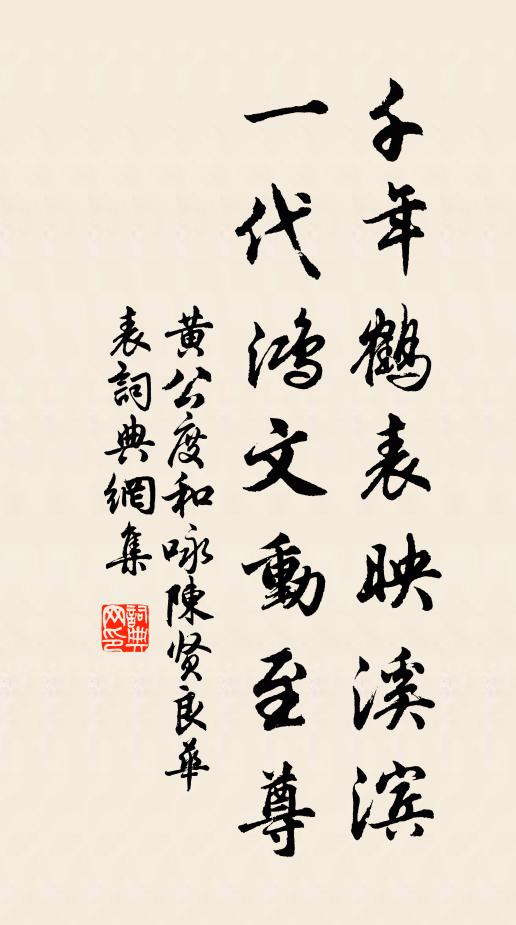 千年鶴表映溪滨
一代鴻文動至尊
黄公度和咏陳贤良華
表詞典網集
詞典
网印